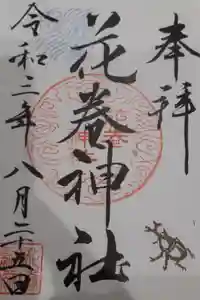 奉拝
花巻神社
令和三年八月二十五日